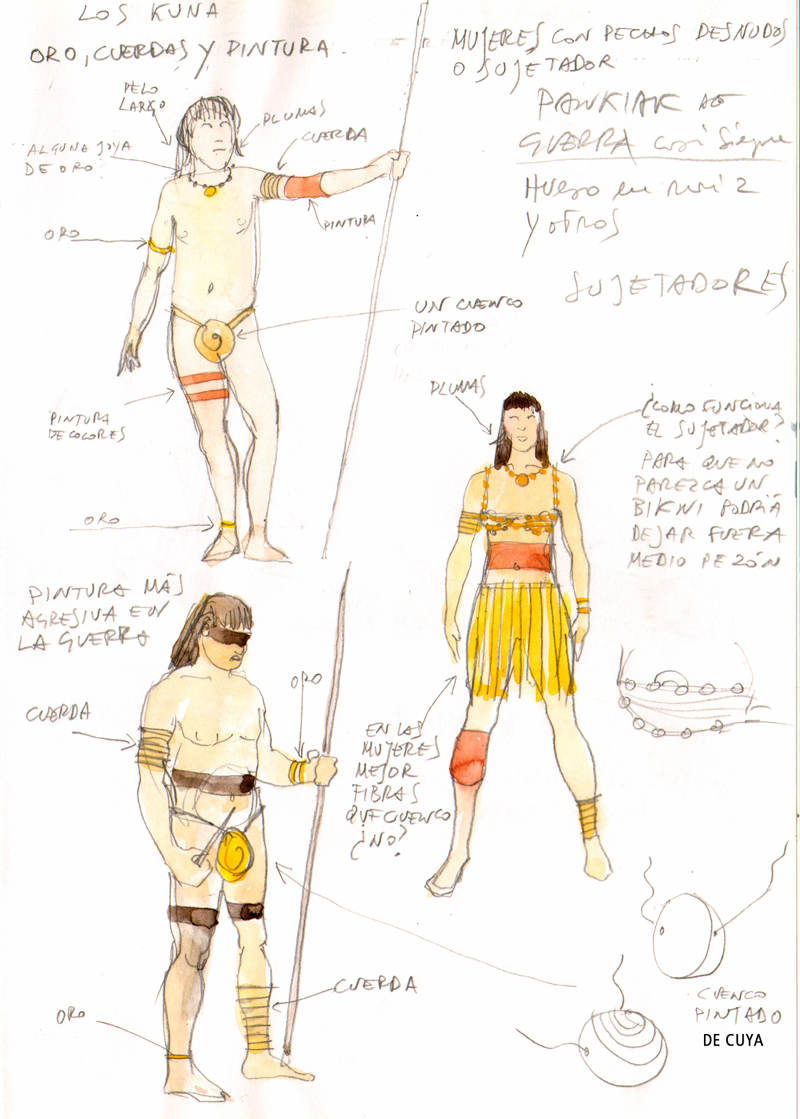 LOS KUNA
ORO, CUERDAS Y PINTURA.
PELO
LARGO
PLUMAS
CUERDA
ALGUNA JOYA
DE ORO
PINTURA
ORO
UN CUENCO
PINTADO
PINTURA
DE COLORES
ORO
MUJERES CON PECHOS DESNUDOS
O SUJETADOR
GUERRA casi siempre
Hueso en
Y OTROS
SUJETADORES
PLUMAS
¿COMO FUNCIONA
EL SUJETADOR?
PARA QUE NO
PAREZCA UN
BIKINI PODRÍA
DEJAR FUERA
MEDIO PEZÓN
PINTURA MÁS
AGRESIVA EN
LA GUERRA
CUERDA
ORO
EN LAS
MUJERES
MEJOR
FIBRAS
QUE CUENCO
¿NO?
CUERDA
ORO
CUENCO
PINTADO
DE CUYA